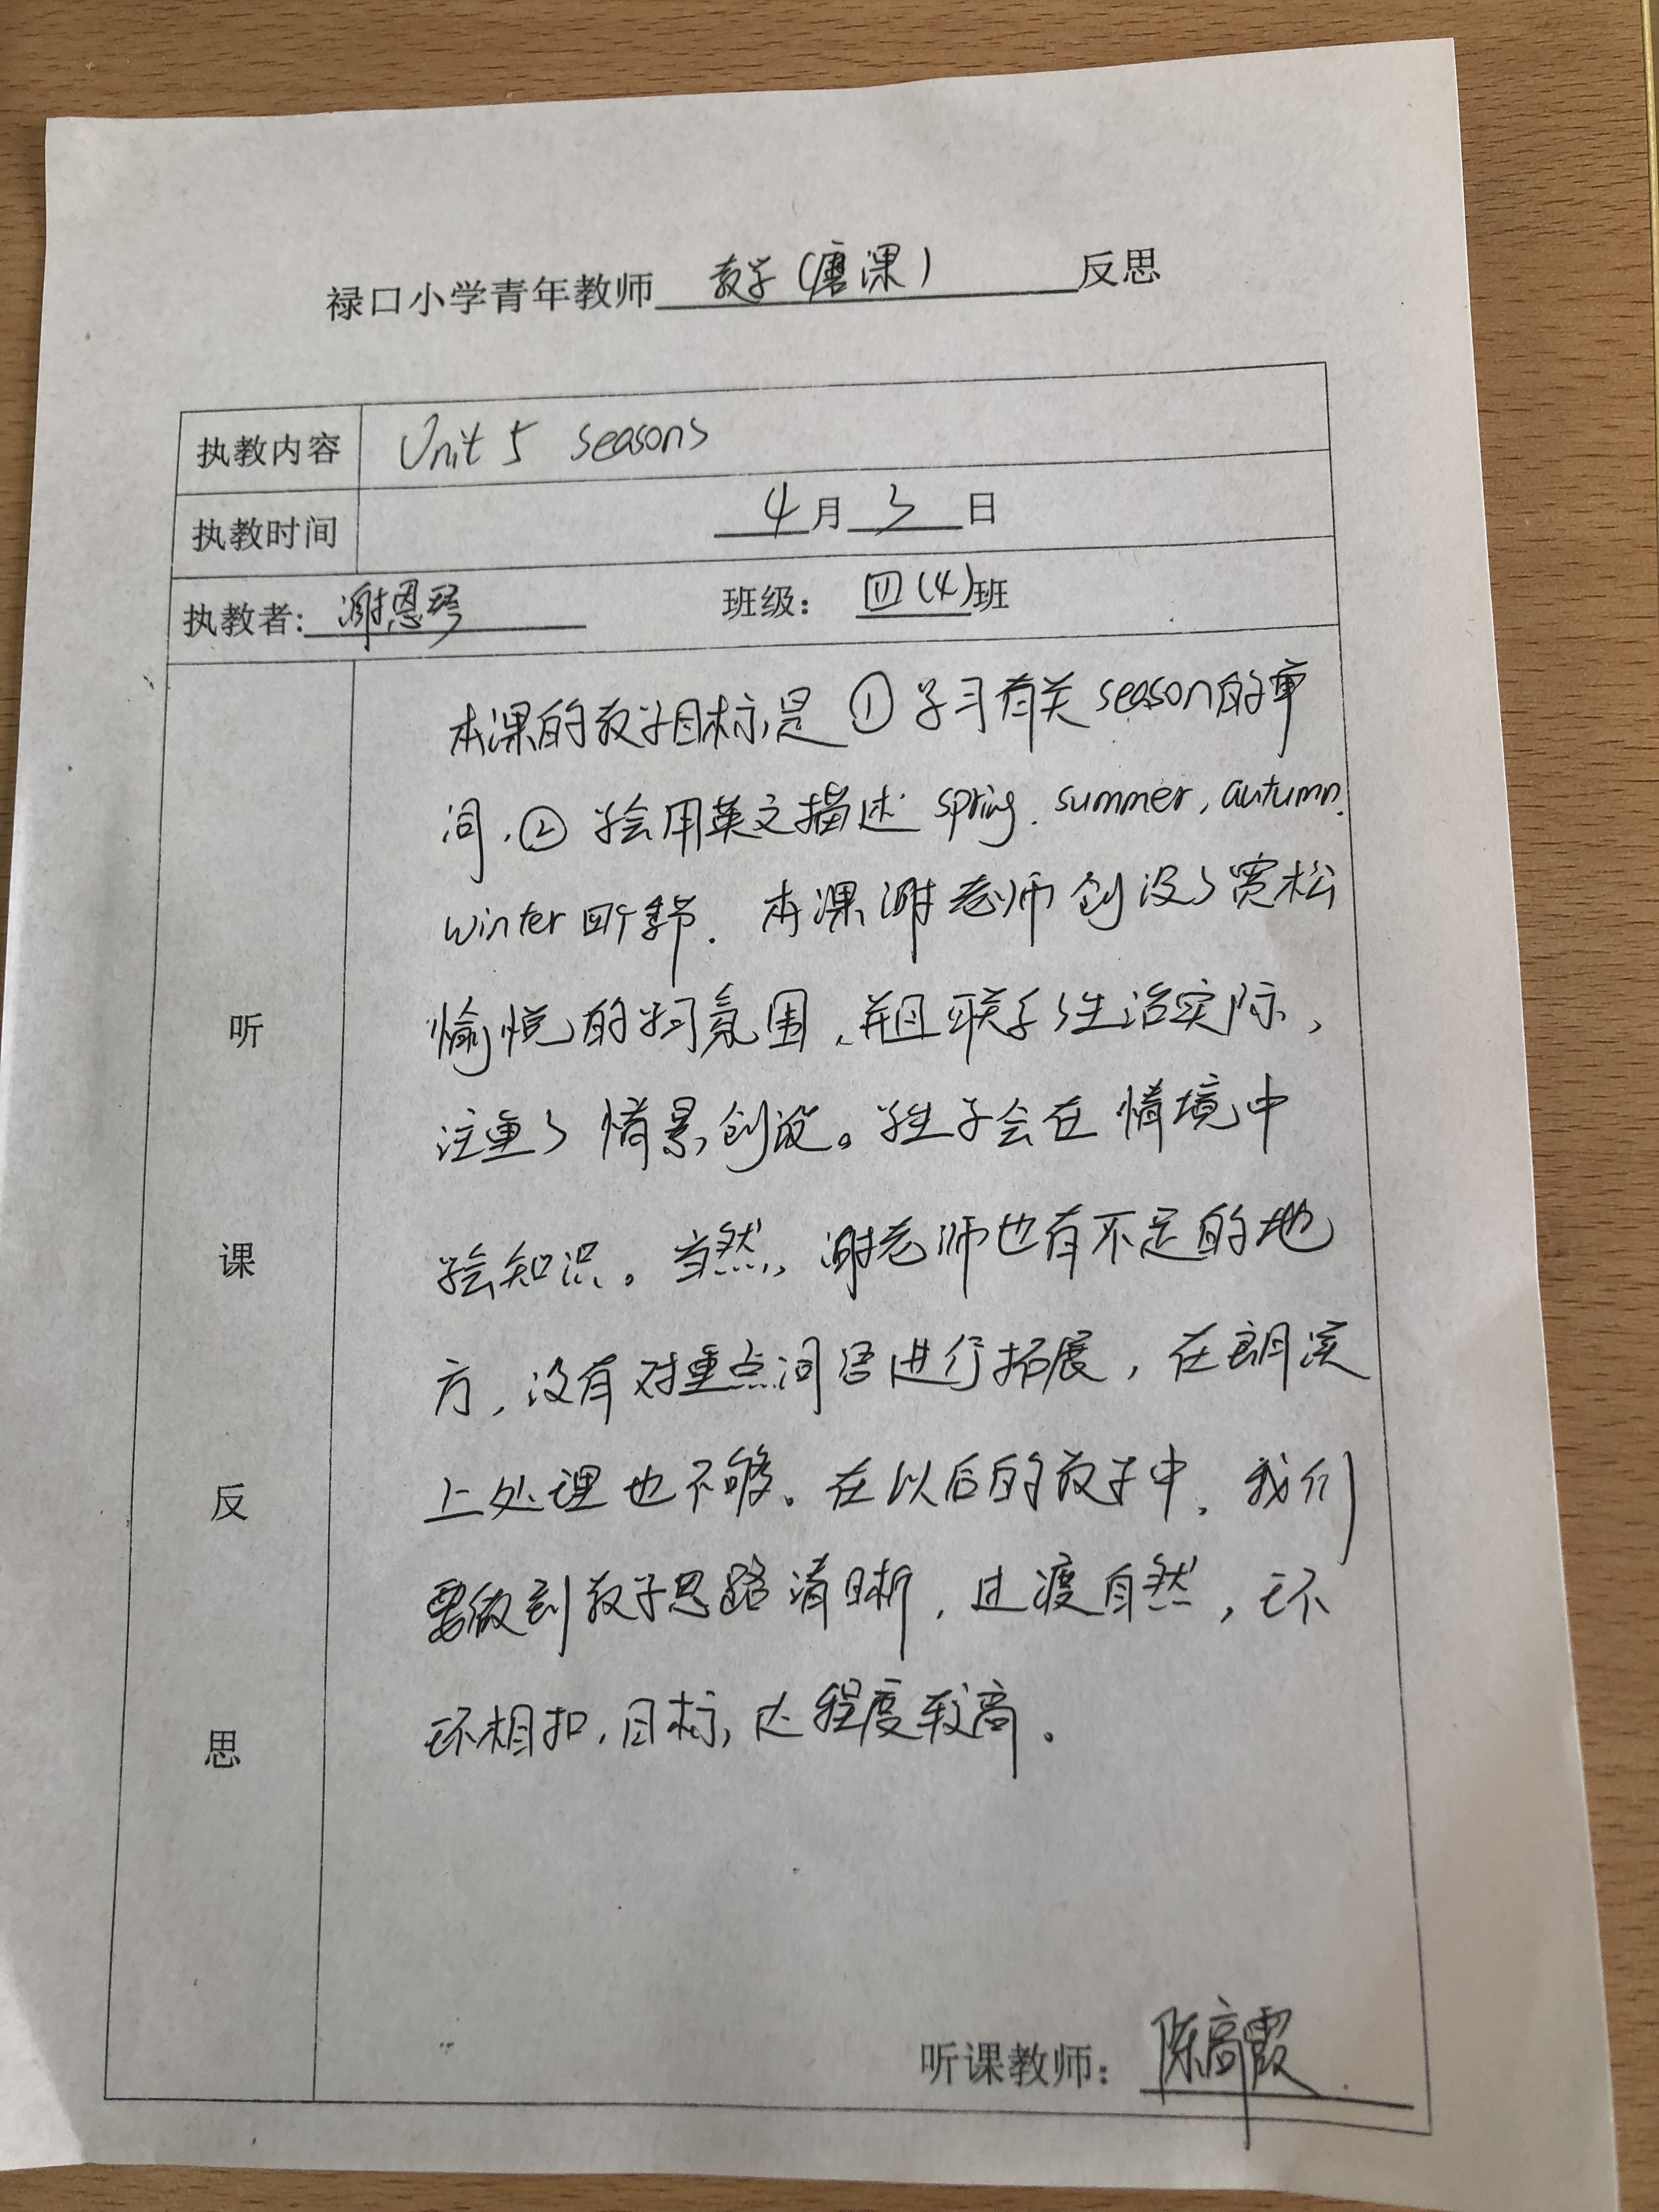 禄口小学青年教师 教学(磨课) 反思
执教内容 Unit 5 seasons
执教时间 4月3日
执教者: 谢恩琴 班级: 四(4)班
听课反思
本课的教学目标是①学习有关season的单
词.②学会用英文描述spring. summer, autumn.
winter四个季节. 本课谢老师创设了宽松
愉悦的学习氛围,并且联系了生活实际,
注重了情景创设。学生学会在情境中
学会知识。当然,谢老师也有不足的地
方,没有对重点词语进行拓展,在朗读
上处理也不够。在以后的教学中,我们
要做到教学思路清晰,过渡自然,环
环相扣.目标达程度较高.
听课教师: 陈高霞